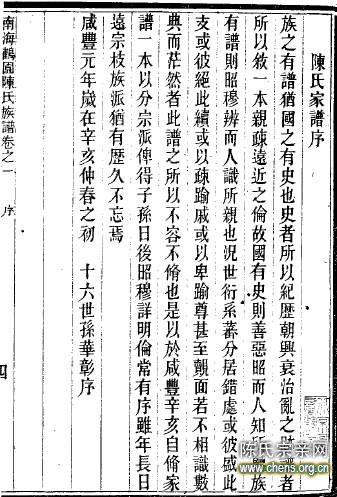 陳氏家譜序
族之有譜猶國之有史也史者所以紀歷朝興衰治亂之者
所以敘一本親疎遠近之倫故國有史則善惡昭而人知所族
有譜則昭穆辨而人識所親也況世衍系蕃分居錯處或彼盛此
支或彼絕此續或以疎踰戚或以卑踰尊甚至覿面若不相識數
典而茫然者此譜之所以不容不脩也是以於咸豐辛亥自脩家
譜一本以分宗派俾得子孫日後昭穆詳明倫常有序雖年長日
遠宗枝族派猶有歷久不忘焉
咸豐元年歲在辛亥仲春之初 十六世孫華彰序
南海鶴園陳氏族譜卷之一 序 四
陈氏宗亲网
www.chens.org.cn